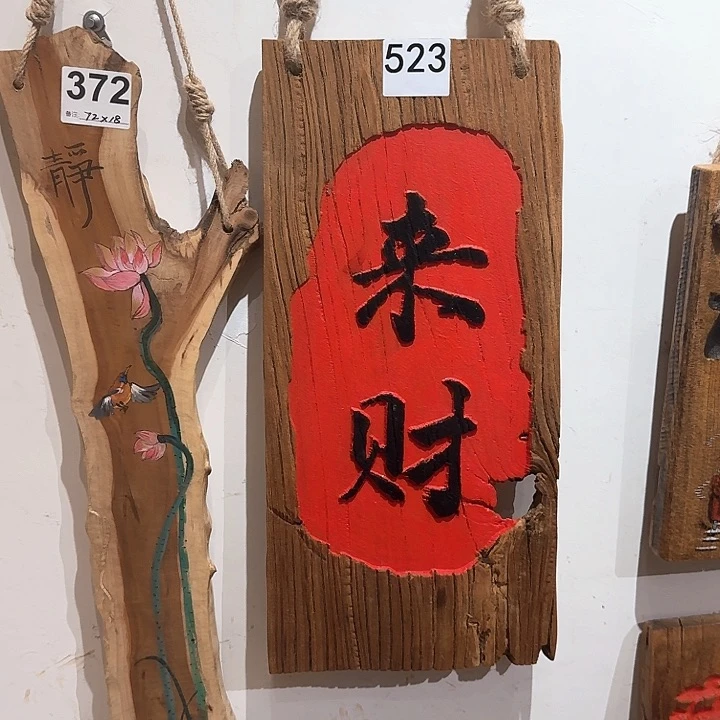 372
72×18
靜
523
来
财